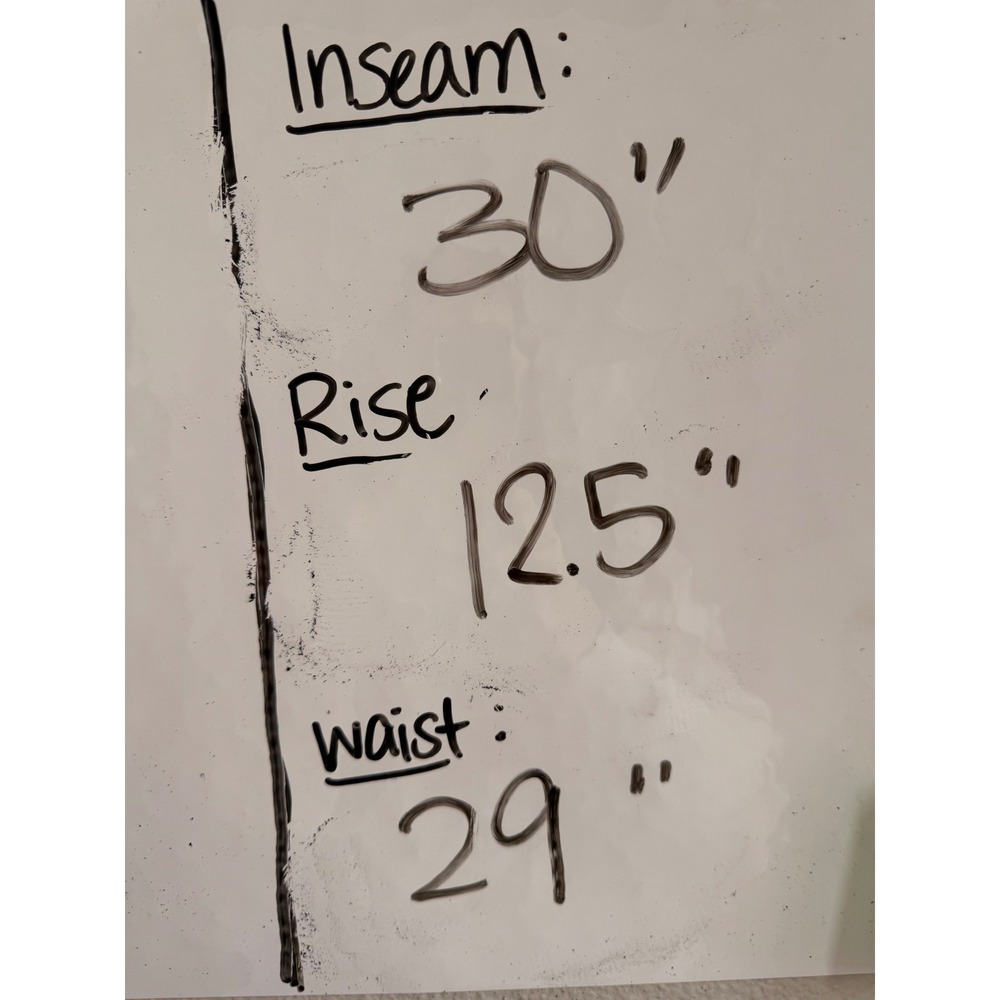 Inseam:
30"
Rise
12.5"
waist:
29"